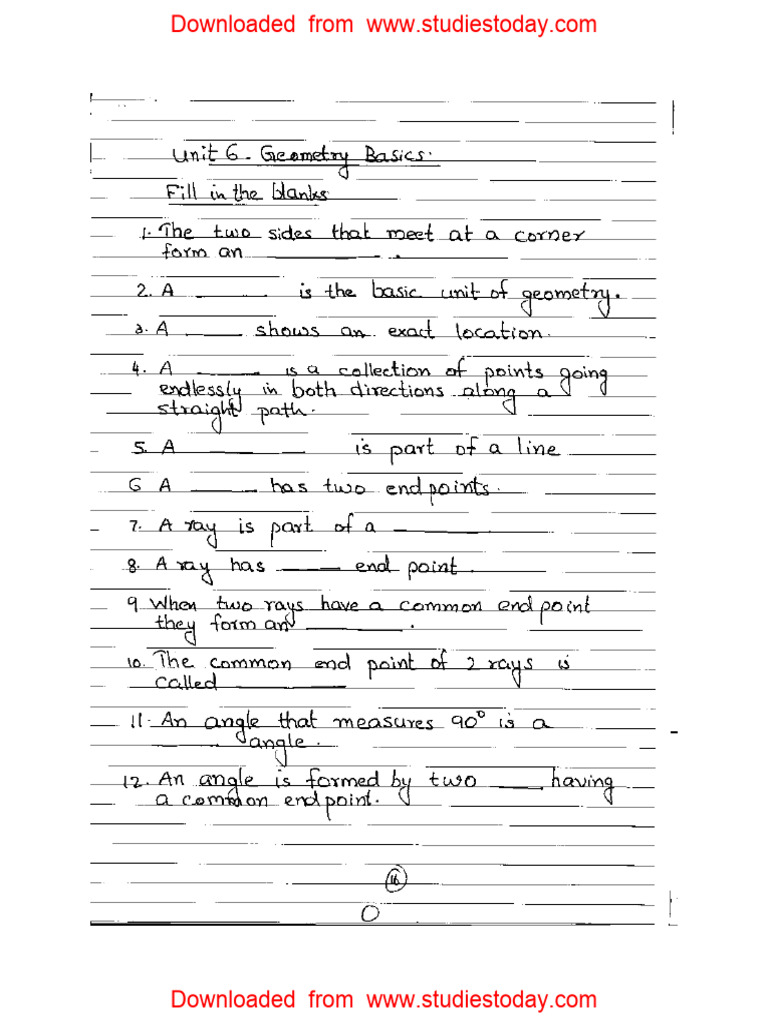 Downloaded from www.studiestoday.com
Unit 6 - Geometry Basics.
Fill in the blanks
1. The two sides that meet at a corner
form an __________ .
2. A ______ is the basic unit of geometry.
3. A _____ shows an exact location.
4. A ______ is a collection of points going
endlessly in both directions along a
straight path.
5. A __________ is part of a line
6 A ______ has two end points.
7. A ray is part of a __________
8. A ray has _____ end point.
9 When two rays have a common end point
they form an _________ .
10. The common end point of 2 rays is
called __________
11. An angle that measures 90° is a
_______ angle.
12. An angle is formed by two ____ having
a common end point.
16
Downloaded from www.studiestoday.com